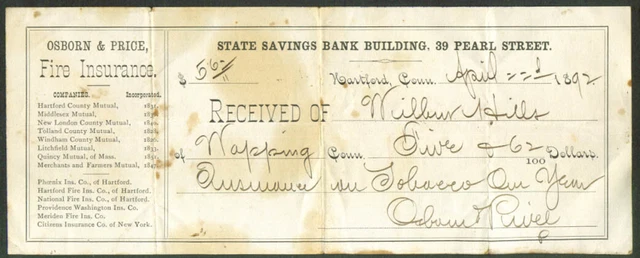 OSBORN & PRICE,
Fire Insurance.
COMPANIES. Incorporated.
Hartford County Mutual, 1831.
Middlesex Mutual,
New London County Mutual,
Tolland County Mutual,
Windham County Mutual,
Litchfield Mutual,
Quincy Mutual, of Mass.
Merchants and Farmers Mutual,
Phœnix Ins. Co., of Hartford.
Hartford Fire Ins. Co., of Hartford.
National Fire Ins. Co., of Hartford.
Providence Washington Ins. Co.
Meriden Fire Ins, Co.
Citizens Insurance Co. of New York.
STATE SAVINGS BANK BUILDING, 39 PEARL STREET.
$ 5 62/11 Hartford, Conn. April 22d 1892
RECEIVED OF Wilbur Hills
of Wapping Conn. Five & 62/100 Dollars.
Insurance on Tobacco One Year
Osborn & Price